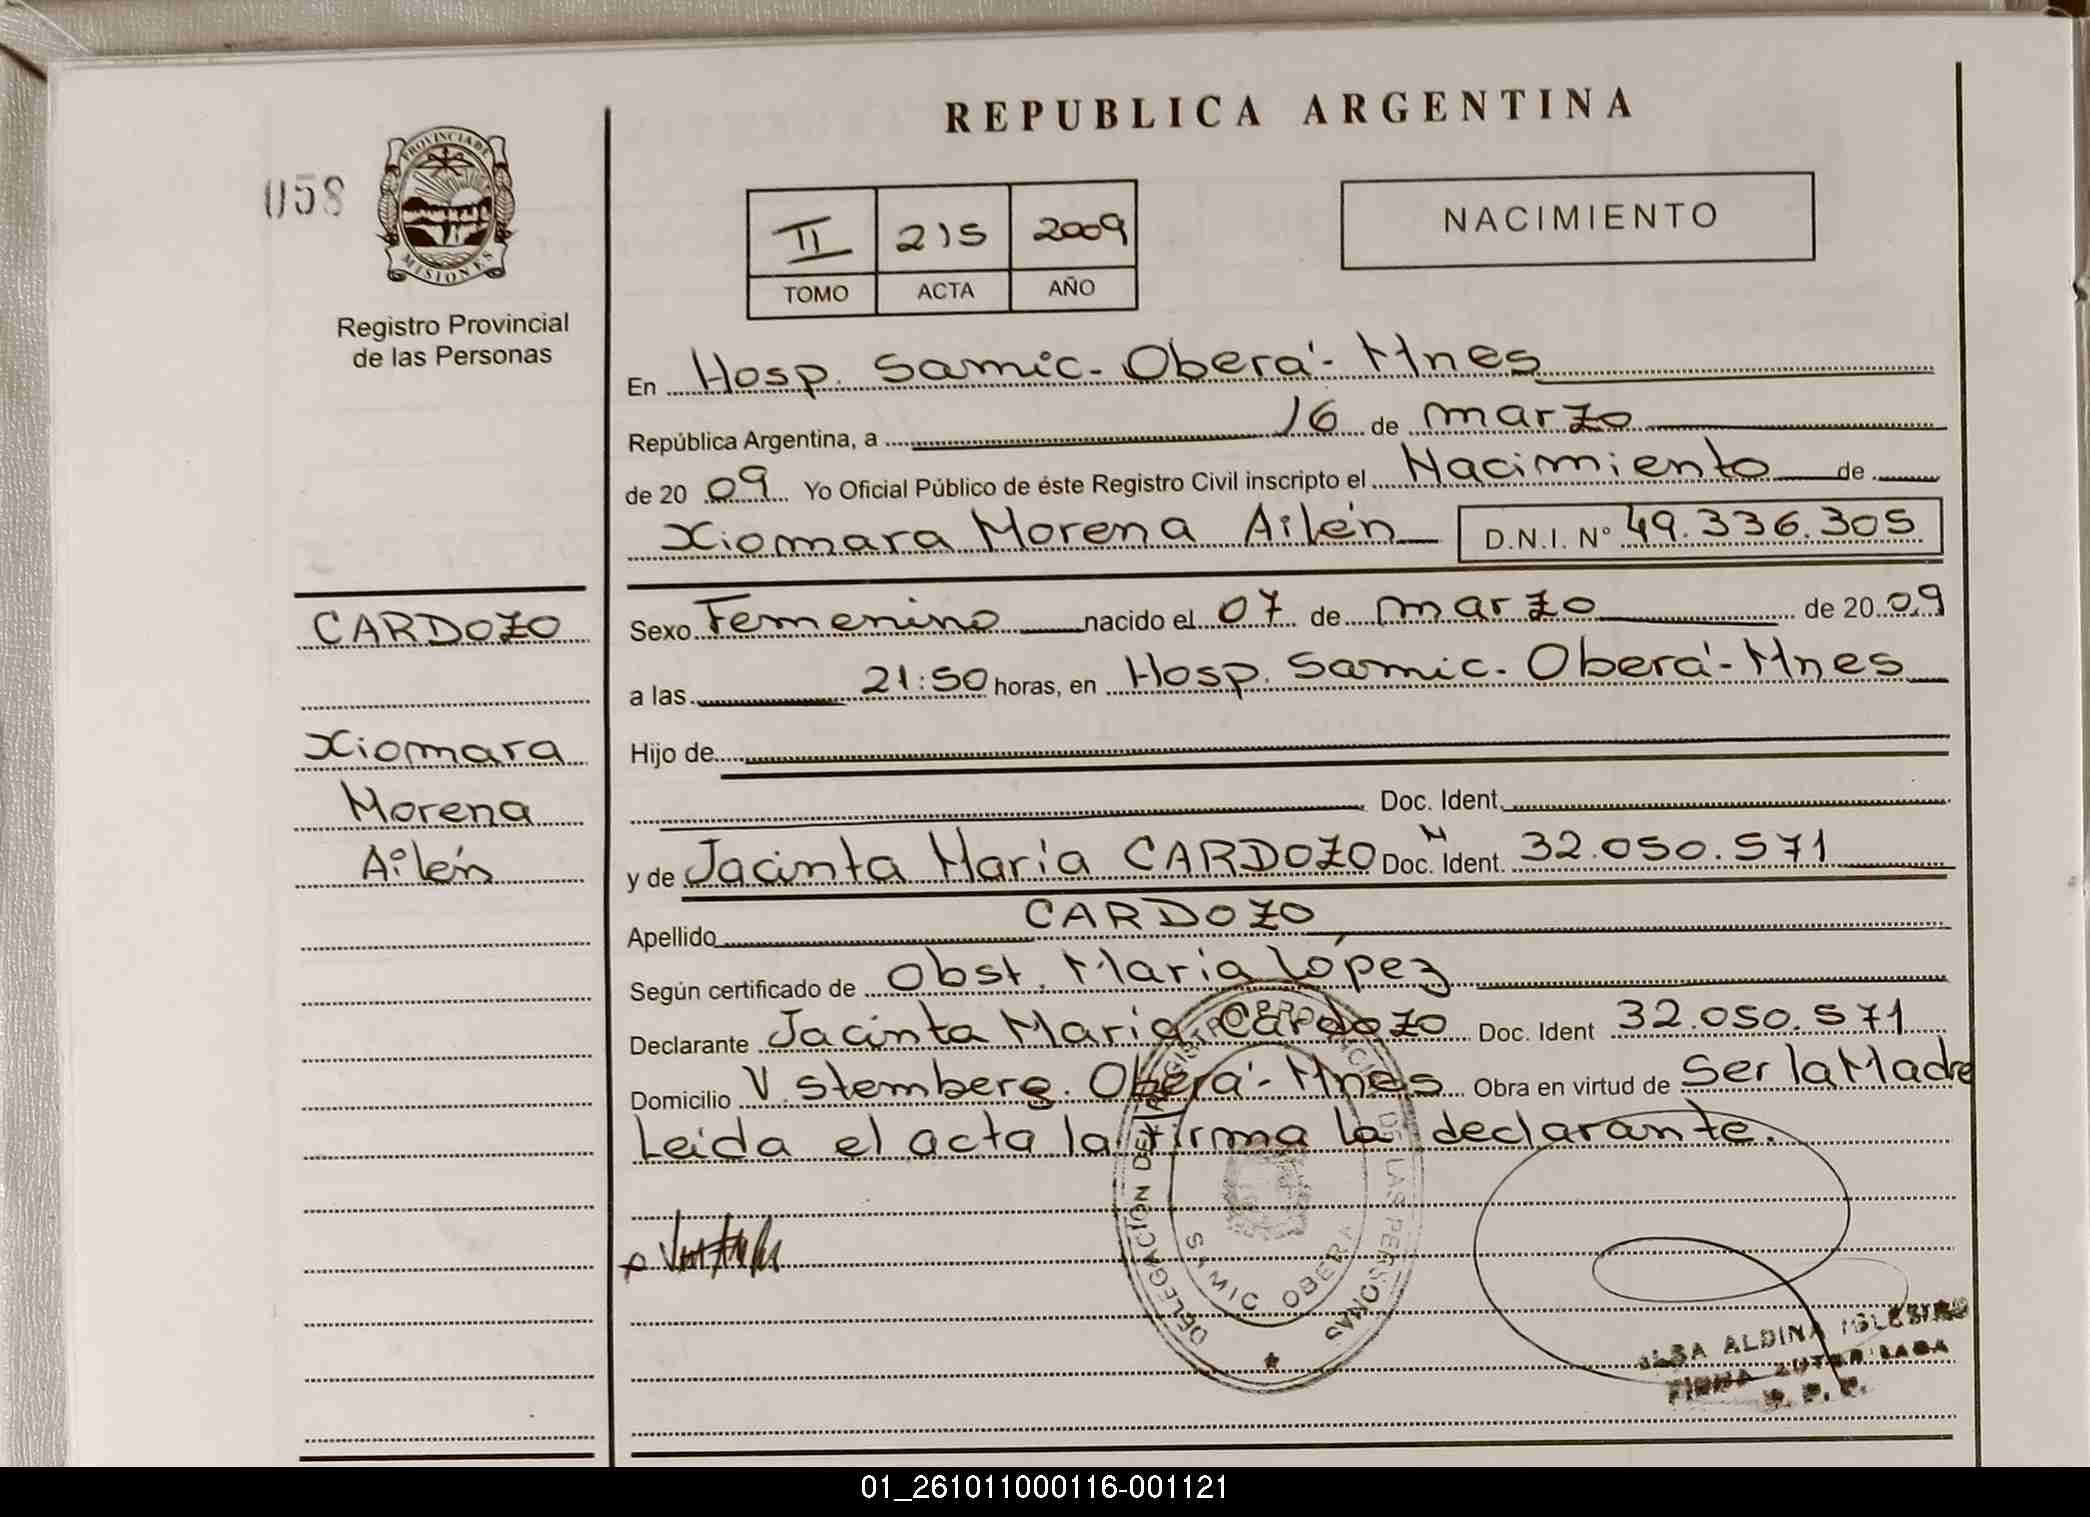 REPUBLICA ARGENTINA
058
PROVINCIA DE
MISIONES
Registro Provincial
de las Personas
II 215 2009
TOMO ACTA AÑO
NACIMIENTO
En Hosp. Samic - Oberá - Mnes
República Argentina, a 16 de marzo
de 2009 Yo Oficial Público de éste Registro Civil inscripto el Nacimiento de
Xiomara Morena Ailén D.N.I. N° 49.336.305
CARDOZO
Xiomara
Morena
Ailén
Sexo Femenino nacido el 07 de marzo de 2009
a las 21:50 horas, en Hosp. Samic - Oberá - Mnes
Hijo de
Doc. Ident.
y de Jacinta María CARDOZO Doc. Ident. M 32.050.571
Apellido CARDOZO
Según certificado de Obst. María López
Declarante Jacinta María Cardozo Doc. Ident 32.050.571
Domicilio V. Stemberg. Oberá - Mnes Obra en virtud de Ser la Madre
Leída el acta la firma la declarante.
DELEGACIÓN DEL REGISTRO PROVINCIAL DE LAS PERSONAS
SAMIC OBERA
ALDINA IGLESIAS
FIRMA AUTORIZADA
R. P. P.
01_261011000116-001121